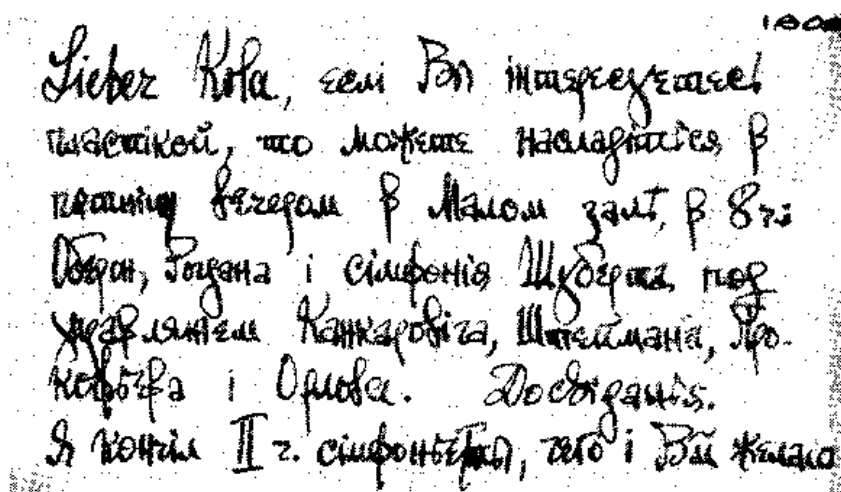 Lieber Kola, еслі Вы інтересуетесь
пластікой, то можете насладітся в
пятніцу вечером в Малом залѣ, в 8 ч.:
Оберон, Роздана і сімфонія Шуберта, под
управляніем Канкаровіча, Штеймана, Про-
кофьева і Орлова. Досвіданія.
Я кончіл II ч. сімфоньетты, чего і Вам желаю